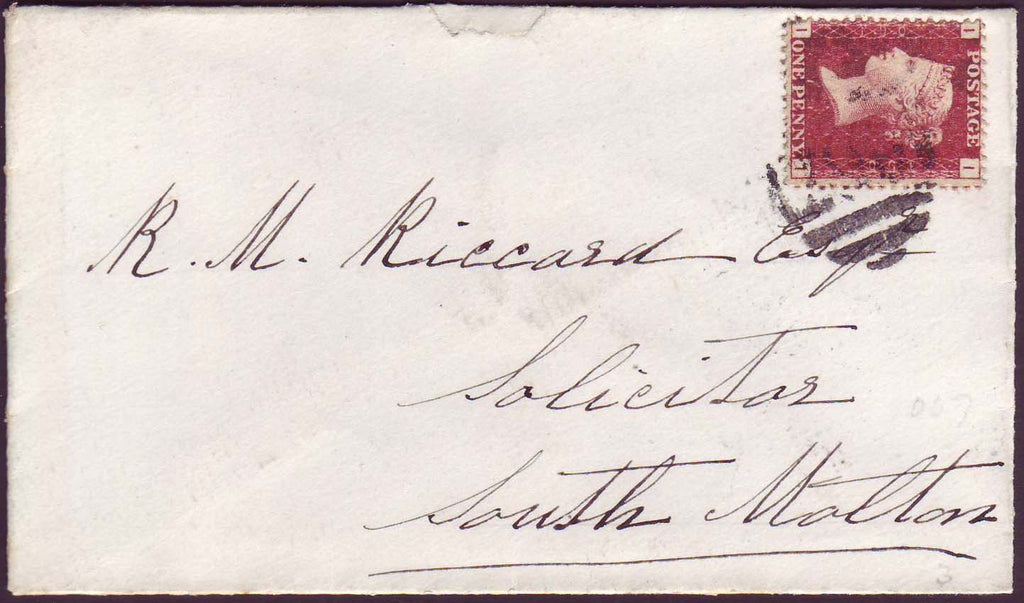 POSTAGE
ONE PENNY
I I
I I
R. M. Riccard Esqr
Solicitor
South Molton
007
3